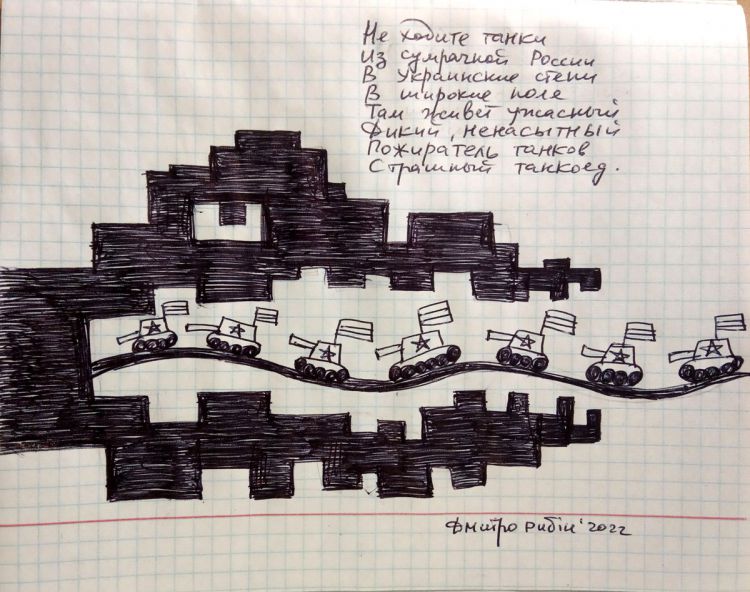 Не ходите танки
Из сумрачной России
В Украинские степи
В широкие поле
Там живёт ужасный
Дикий, ненасытный
Пожиратель танков
Страшный танкоед.
Дмитро Рибін '2022